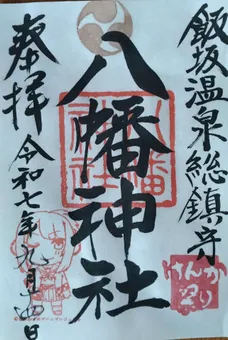 飯坂温泉総鎮守
八幡神社
奉拝
令和七年九月十四日
八幡
神社
けんか
祭り